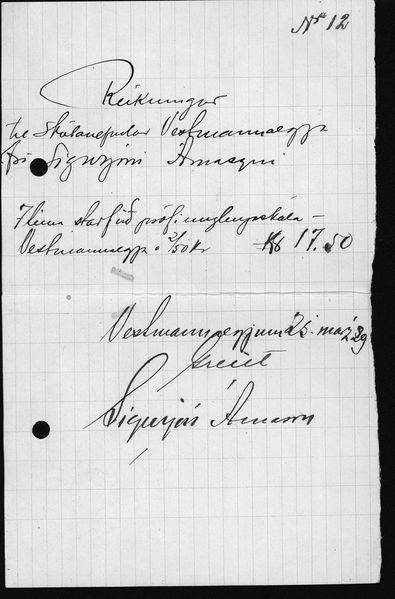 No 12
Reikningur
til Skólanefndar Vestmannaeyja
frá Sigurjóni Árnasyni
7 tíma starf við próf í unglingaskóla
Vestmannaeyja á 2/50 kr Kr 17.50
Vestmannaeyjum 25. maí 29
Greitt
Sigurjón Árnason